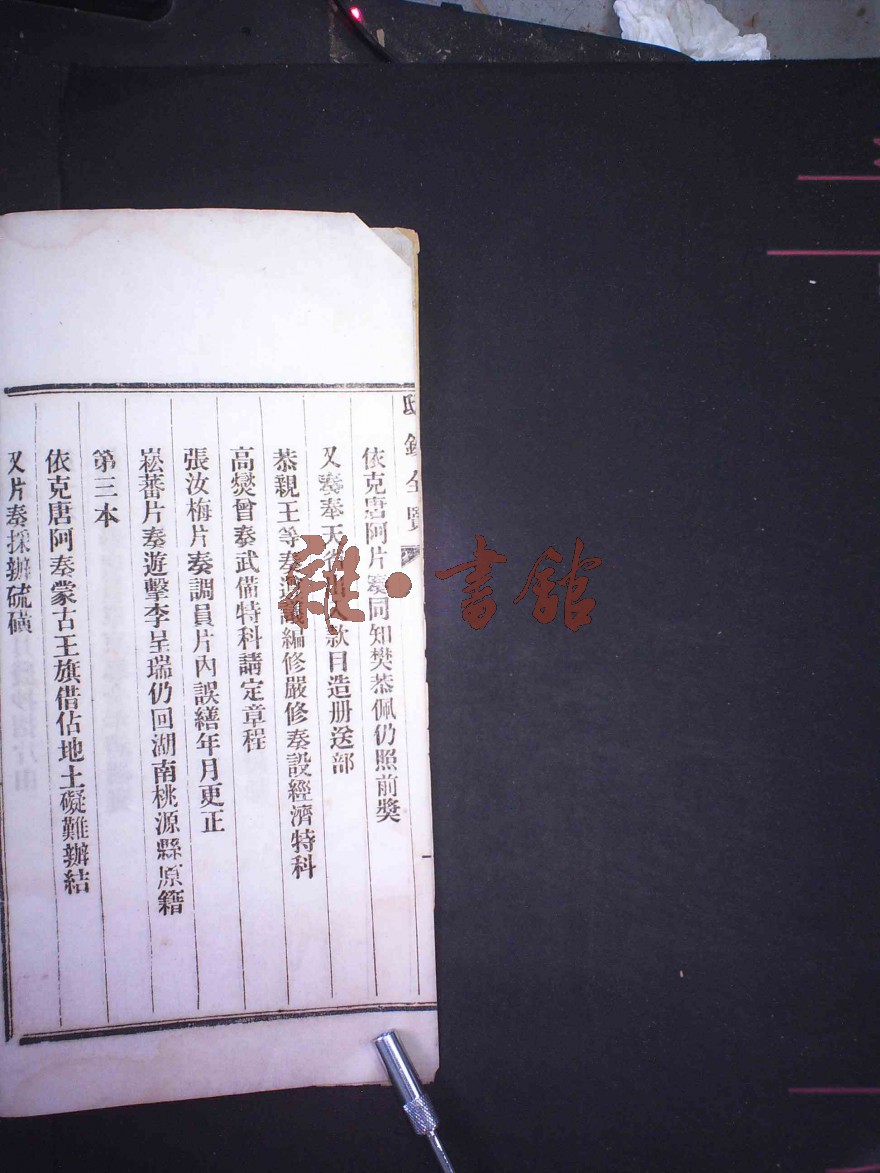 邸鈔全覽
依克唐阿片奏同知樊恭佩仍照前獎
又奏奉天省出入款目造册送部
恭親王等奏遵議編修嚴修奏設經濟特科
高燮曾奏武備特科請定章程
張汝梅片奏調員片內誤繕年月更正
崧蕃片奏遊擊李呈瑞仍回湖南桃源縣原籍
第三本
依克唐阿奏蒙古王旗借佔地土礙難辦結
又片奏採辦硫磺
雜·書館